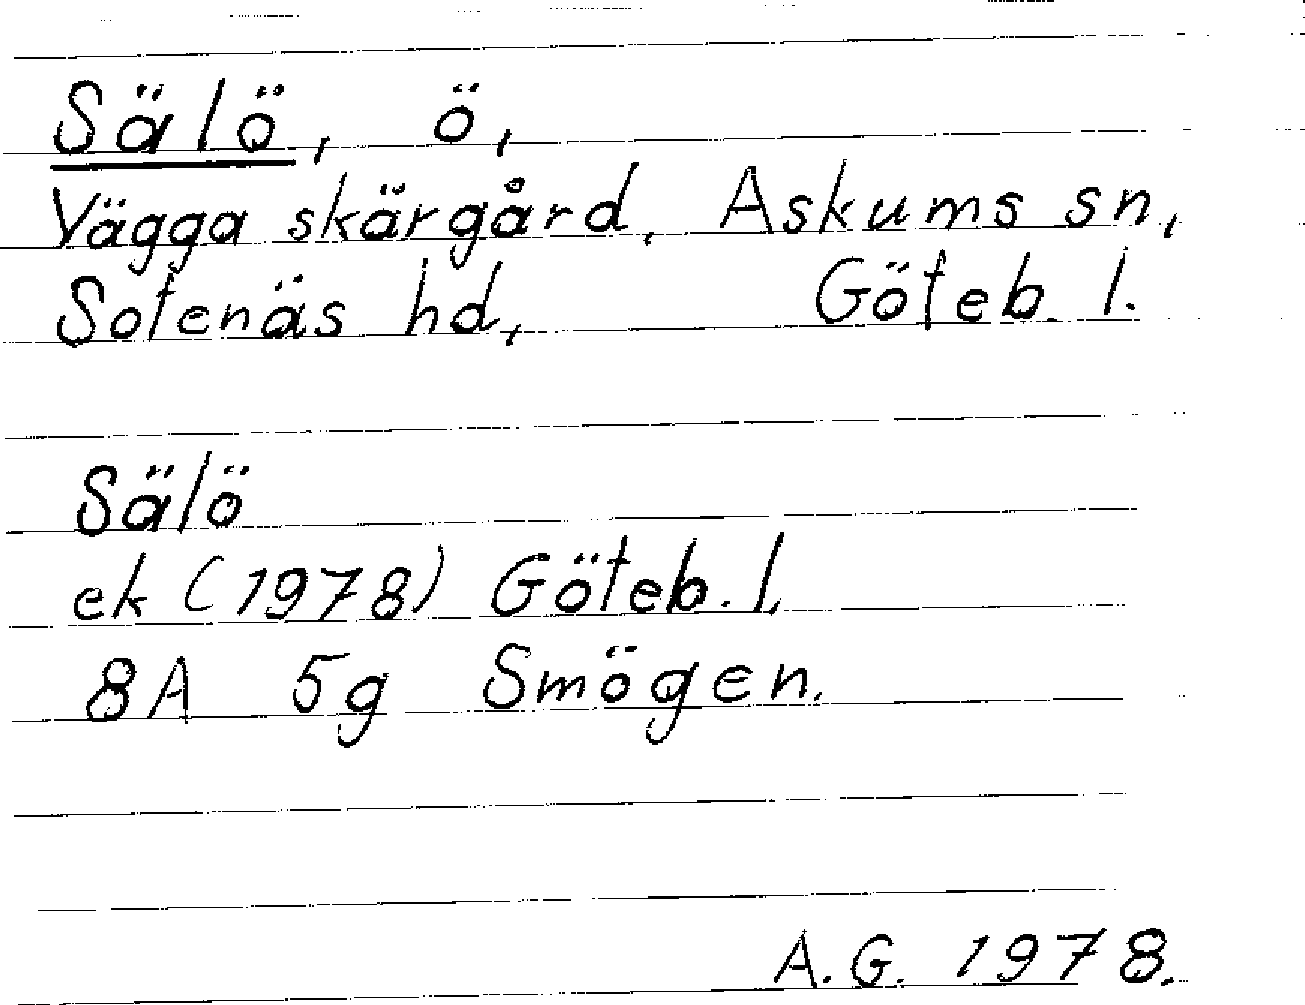 Sälö, ö,
Vägga skärgård, Askums sn,
Sotenäs hd, Göteb. l.
Sälö
ek (1978) Göteb. l,
8A 5g Smögen.
A.G. 1978.